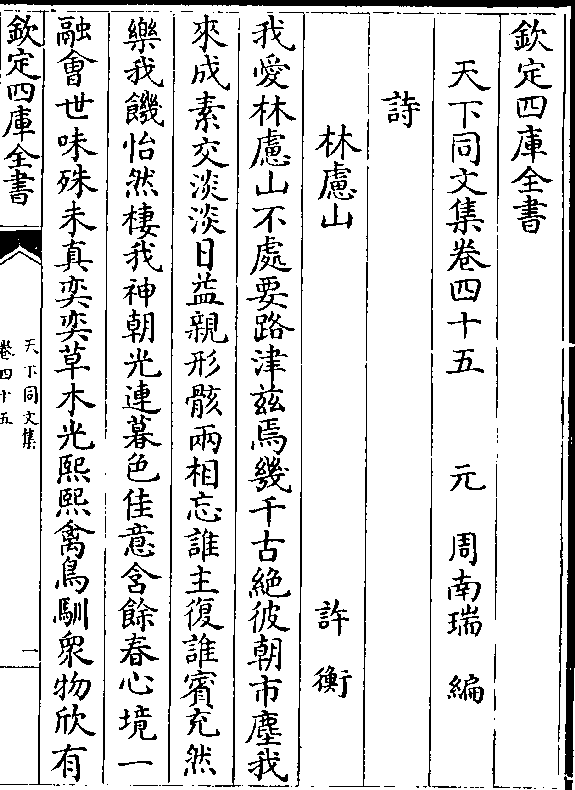 欽定四庫全書
天下同文集卷四十五　元　周南瑞　編
詩
林慮山　許衡
我愛林慮山不處要路津兹焉幾千古絶彼朝市塵我
來成素交淡淡日益親形骸兩相忘誰主復誰賓充然
樂我饑怡然棲我神朝光連暮色佳意含餘春心境一
融會世味殊未真奕奕草木光熙熙禽鳥馴衆物欣有
欽定四庫全書
天下同文集
卷四十五
一